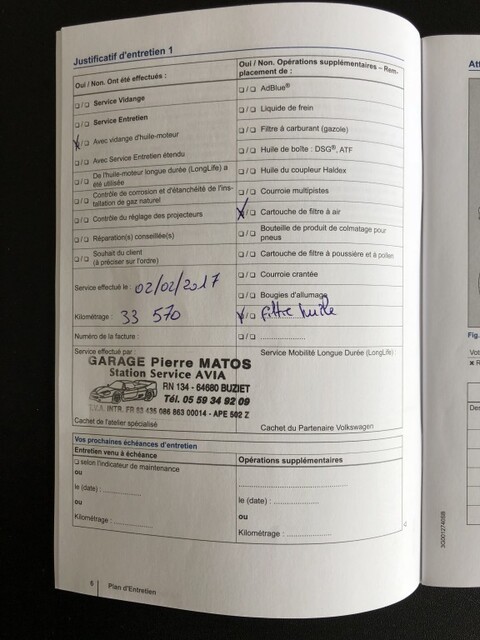 Justificatif d'entretien 1
Oui / Non. Ont été effectués :
❑ / ❑ Service Vidange
❑ / ❑ Service Entretien
X / ❑ Avec vidange d'huile-moteur
❑ / ❑ Avec Service Entretien étendu
❑ / ❑ De l'huile-moteur longue durée (LongLife) a
été utilisée
❑ / ❑ Contrôle de corrosion et d'étanchéité de l'ins-
tallation de gaz naturel
❑ / ❑ Contrôle du réglage des projecteurs
❑ / ❑ Réparation(s) conseillée(s)
❑ / ❑ Souhait du client
(à préciser sur l'ordre)
Service effectué le : 02/02/2017
Kilométrage : 33 570
Numéro de la facture :
Oui / Non. Opérations supplémentaires – Rem-
placement de :
❑ / ❑ AdBlue®
❑ / ❑ Liquide de frein
❑ / ❑ Filtre à carburant (gazole)
❑ / ❑ Huile de boîte : DSG®, ATF
❑ / ❑ Huile du coupleur Haldex
❑ / ❑ Courroie multipistes
X / ❑ Cartouche de filtre à air
❑ / ❑ Bouteille de produit de colmatage pour
pneus
❑ / ❑ Cartouche de filtre à poussière et à pollen
❑ / ❑ Courroie crantée
❑ / ❑ Bougies d'allumage
X / ❑ filtre huile
❑ / ❑ ....................
Service effectué par :
GARAGE Pierre MATOS
Station Service AVIA
RN 134 - 64680 BUZIET
Tél. 05 59 34 92 09
T.V.A. INTR. FR 83 435 086 863 00014 - APE 502 Z
Cachet de l'atelier spécialisé
Service Mobilité Longue Durée (LongLife)
Cachet du Partenaire Volkswagen
Vos prochaines échéances d'entretien
Entretien venu à échéance
❑ selon l'indicateur de maintenance
ou
le (date) : ....................
ou
Kilométrage : ....................
Opérations supplémentaires
....................
le (date) : ....................
ou
Kilométrage : ....................
6 Plan d'Entretien
Fig.
3G0012740BB